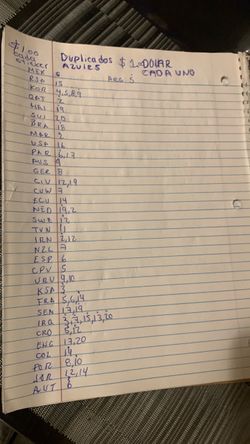 $1.00 cada sticker
Duplicados $1.00 DOLAR
AZULES CADA UNO
MEX 6 ARG 5
RSA 15
KOR 4,5,8,9
QAT 2
HAI 19
SUI 20
BRA 18
MAR 2
USA 16
PAR 6,13
AUS 9
GER 8
CIV 12,19
CUW 7
ECU 14
NED 19,2
SWE 12
TUN 11
IRN 2,12
NZL 7
ESP 6
CPV 5
URU 9,10
KSA 3
FRA 5,6,14
SEN 17,19
IRQ 3,7,15,13,20
CRO 5,12
ENG 17,20
COL 19
POR 8,10
12,14
AUT 6